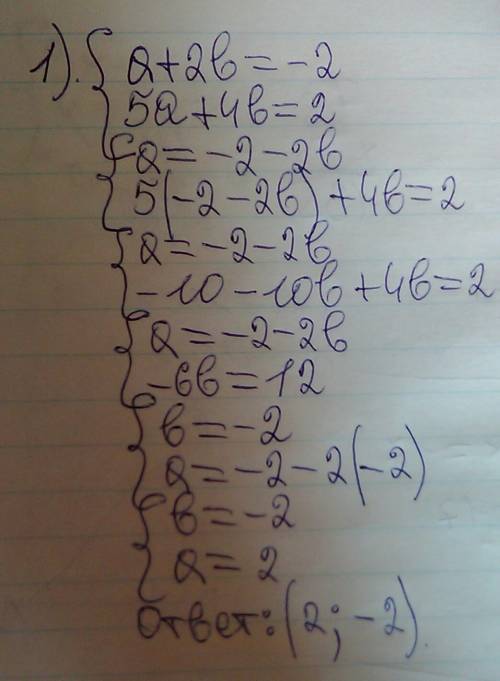 1). a+2b=-2
5a+4b=2
a=-2-2b
5(-2-2b)+4b=2
a=-2-2b
-10-10b+4b=2
a=-2-2b
-6b=12
b=-2
a=-2-2(-2)
b=-2
a=2
ответ: (2; -2).